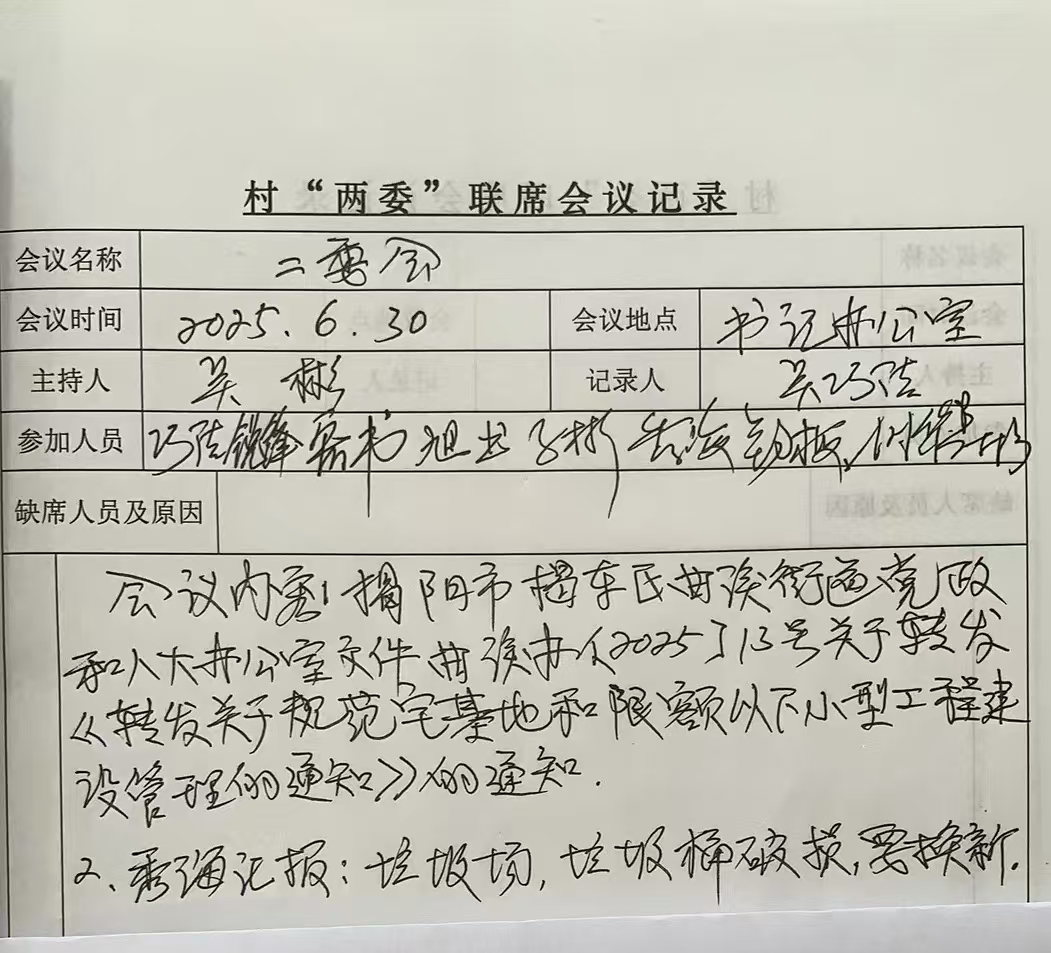 村“两委”联席会议记录
会议名称 二委会
会议时间 2025.6.30 会议地点 书记办公室
主持人 吴彬 记录人 吴巧洁
参加人员 巧洁 锐锋 旭
缺席人员及原因
会议内容: 揭阳市揭东区曲溪街道党政
和人大办公室文件曲溪办〔2025〕13号关于转发
《转发关于规范宅基地和限额以下小型工程建
设管理的通知》的通知.
2、汇报:垃圾场,垃圾桶破损,要换新.